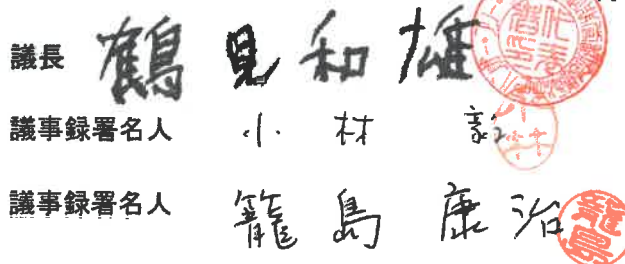 議長 鶴見和雄
議事録署名人 小林 毅
議事録署名人 籠島 康治
籠島